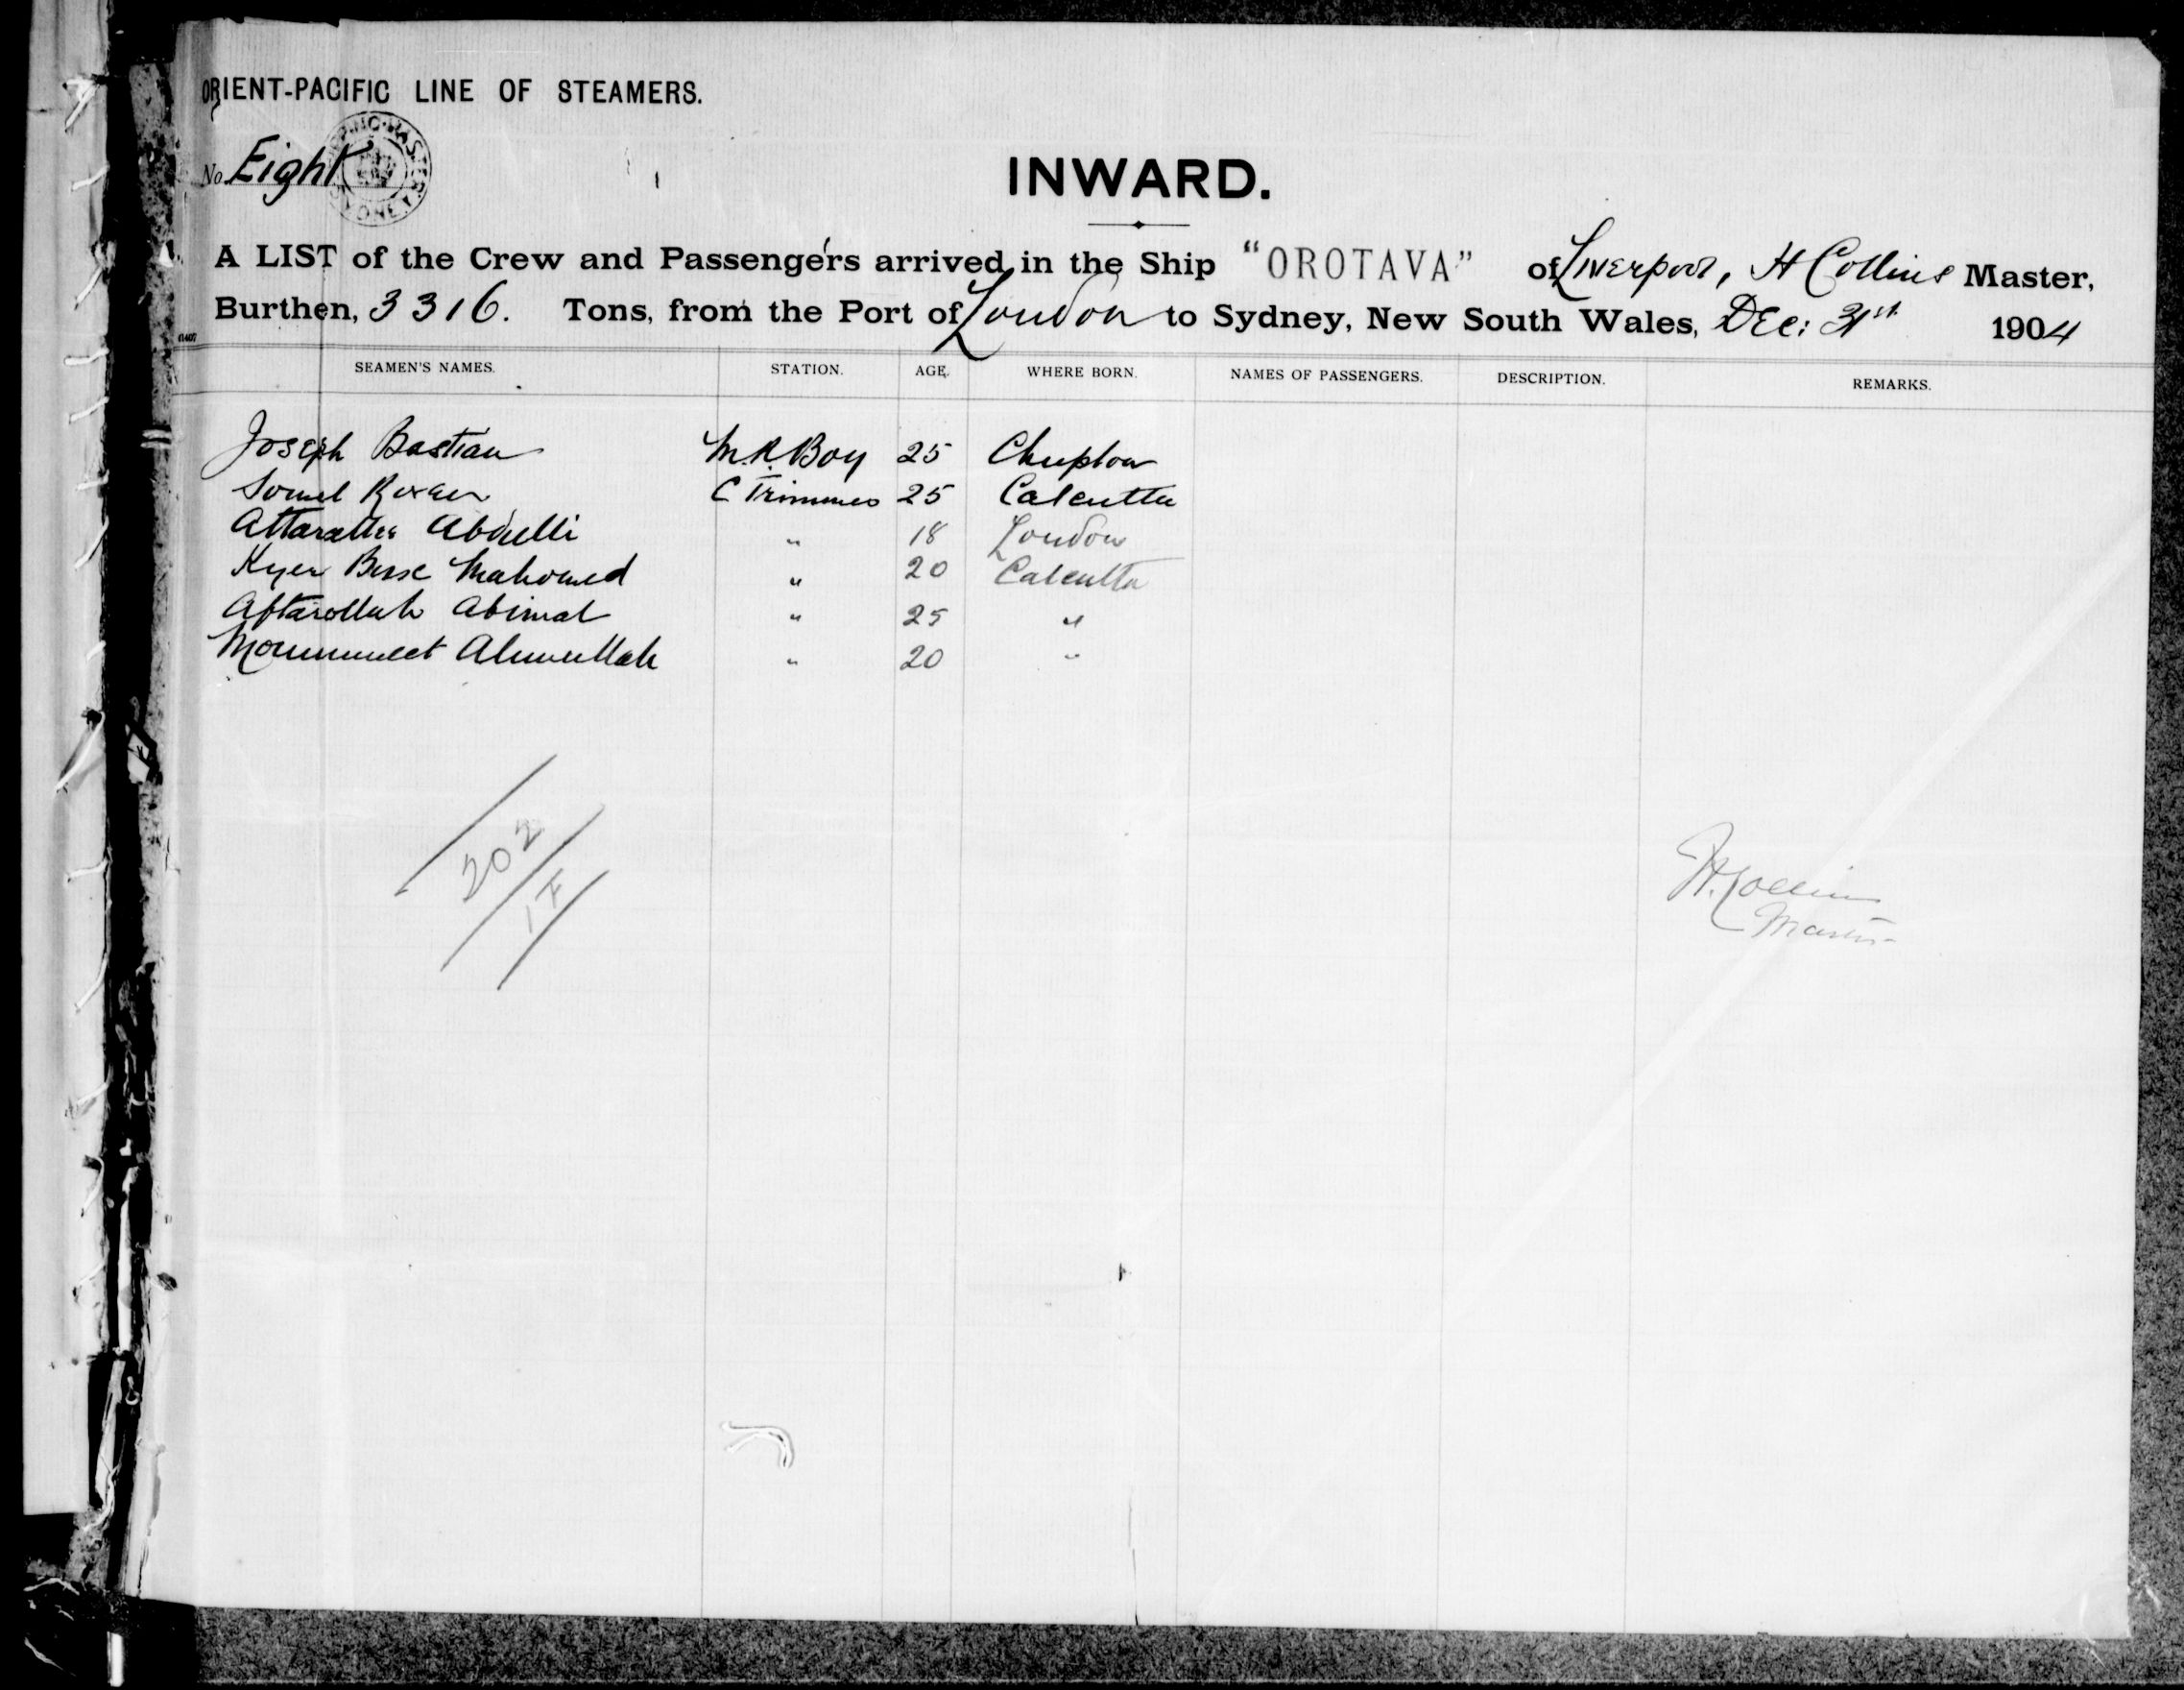 ORIENT-PACIFIC LINE OF STEAMERS.
No. Eight
SHIPPING MASTER SYDNEY
INWARD.
A LIST of the Crew and Passengers arrived in the Ship "OROTAVA" of Liverpool, H Collins Master,
Burthen, 3316. Tons, from the Port of London to Sydney, New South Wales, Dec: 31st 1904
SEAMEN'S NAMES. STATION. AGE. WHERE BORN. NAMES OF PASSENGERS. DESCRIPTION. REMARKS.
Joseph Bastian M.R. Boy 25
C Trimmer 25 Calcutta
Abdulli " 18 London
Mahomed " 20 Calcutta
Aftarollah Abimal " 25 "
" 20 "
202
H. Collins
Master